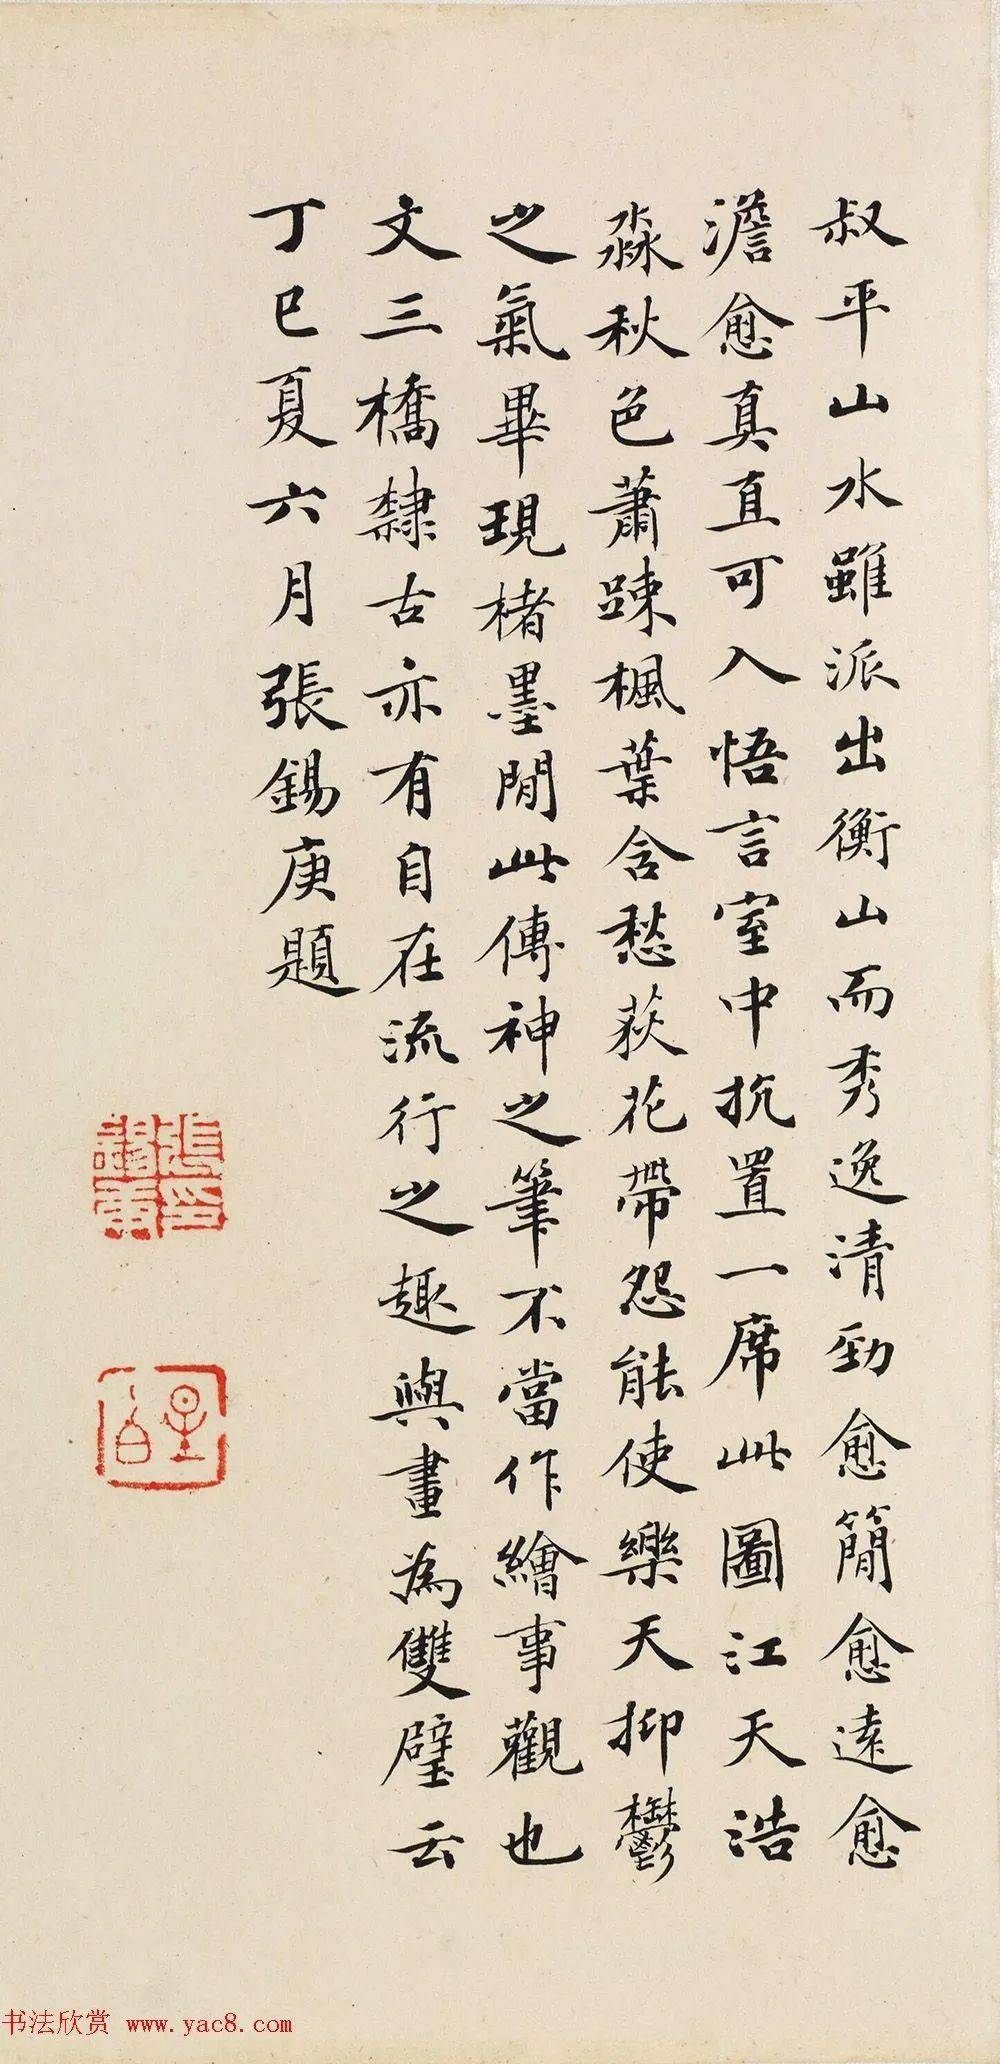 叔平山水雖派出衡山而秀逸清勁愈簡愈遠愈
澹愈真直可入悟言室中抗置一席此圖江天浩
淼秋色蕭踈楓葉含愁荻花帶怨能使樂天抑鬱
之氣畢現楮墨間此傳神之筆不當作繪事觀也
文三橋隸古亦有自在流行之趣與畫為雙璧云
丁巳夏六月張錫庚題
張錫庚印
星白
书法欣赏 www.yac8.com